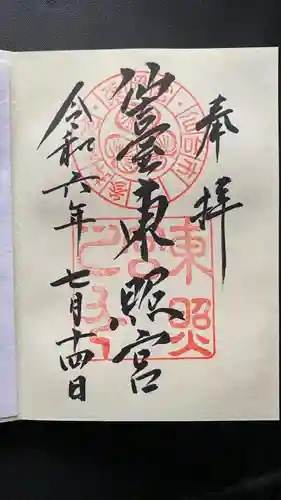 奉拝
仙臺東照宮
令和六年七月十四日
東照